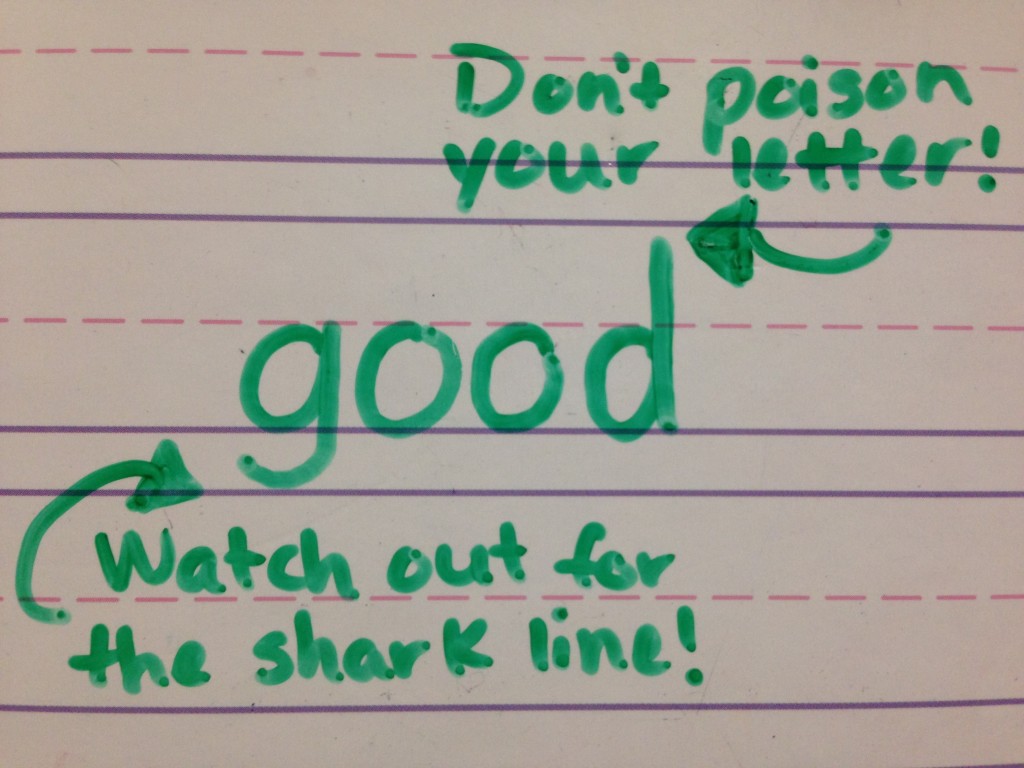 Don't poison
your letter!
good
Watch out for
the shark line!